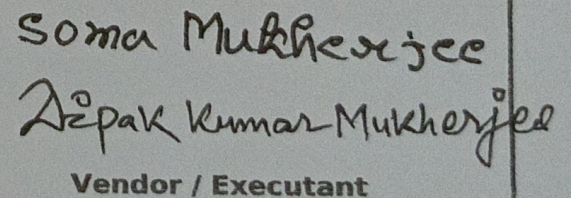 Soma Mukherjee
Dipak Kumar Mukherjee
Vendor / Executant